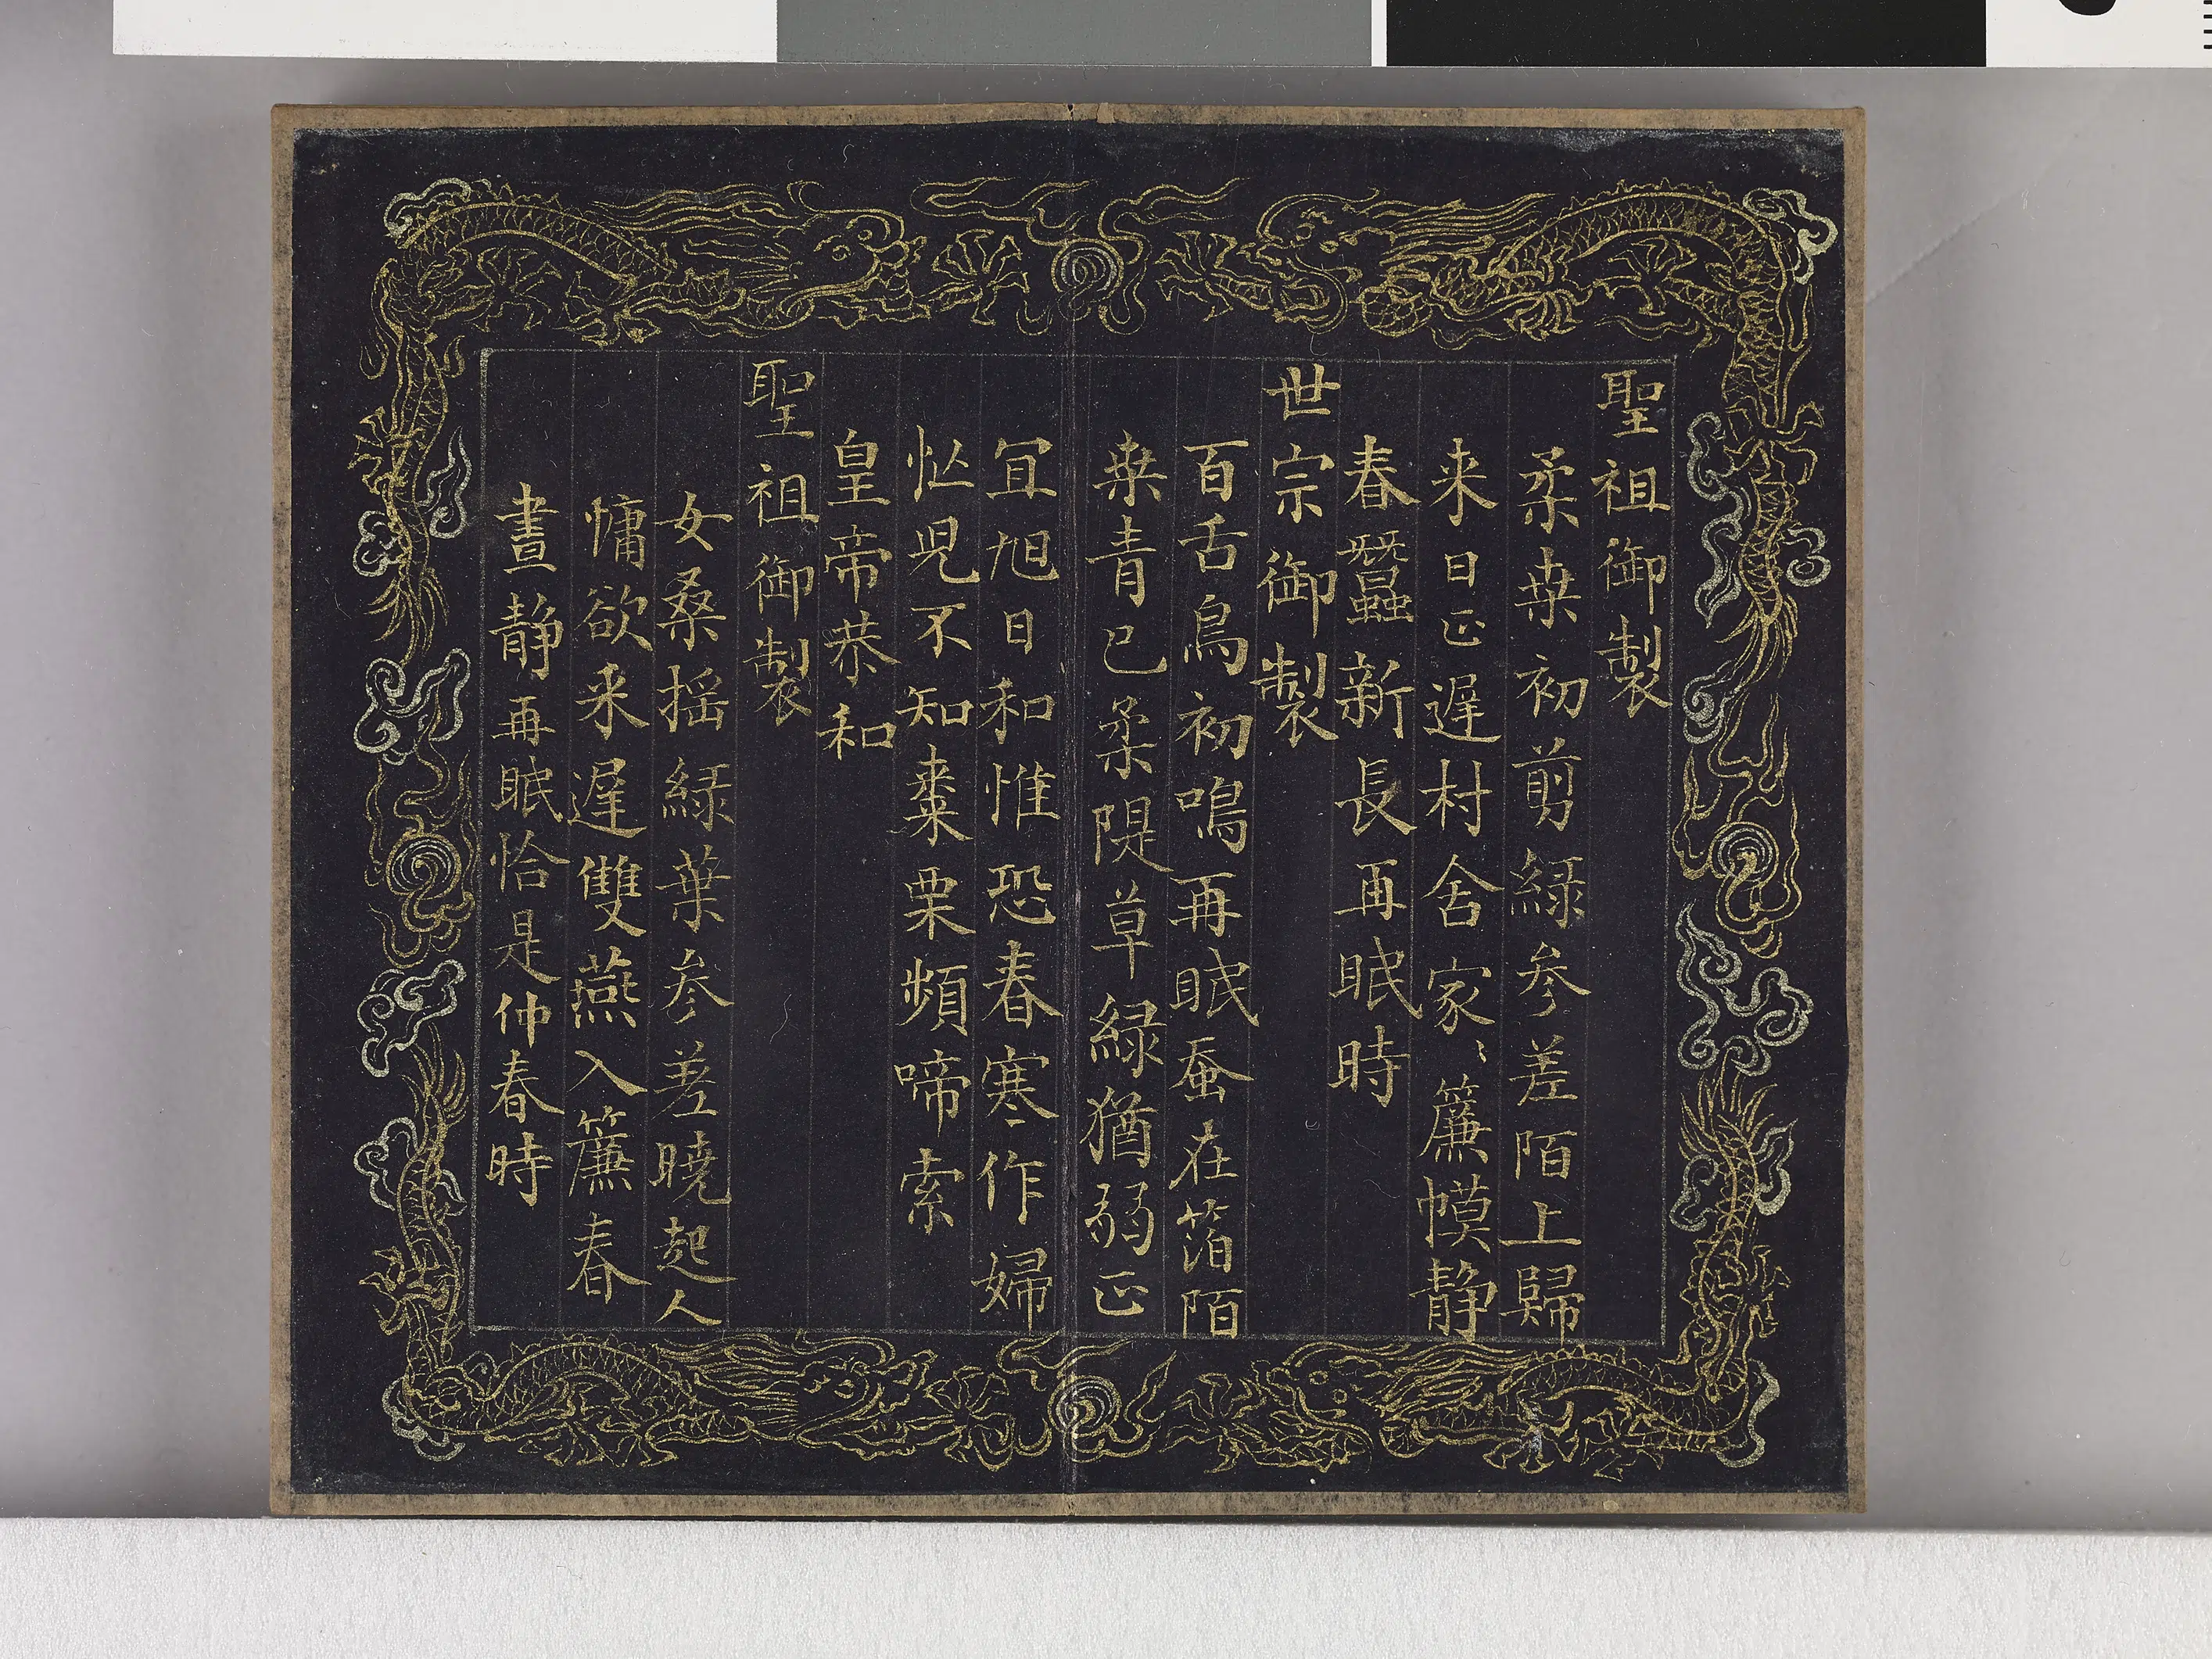 聖祖御製
柔桒初剪綠參差陌上歸
来日正遲村舍家〻簾幙静
春蠶新長再眠時
世宗御製
百舌鳥初鳴再眠蚕在箔陌
桒青已柔隄草綠猶弱正
冝旭日和惟恐春寒作婦
忙児不知棗栗頻啼索
皇帝恭和
聖祖御製
女桑揺綠葉參差曉起人
慵欲来遲雙燕入簾春
晝静再眠恰是仲春時